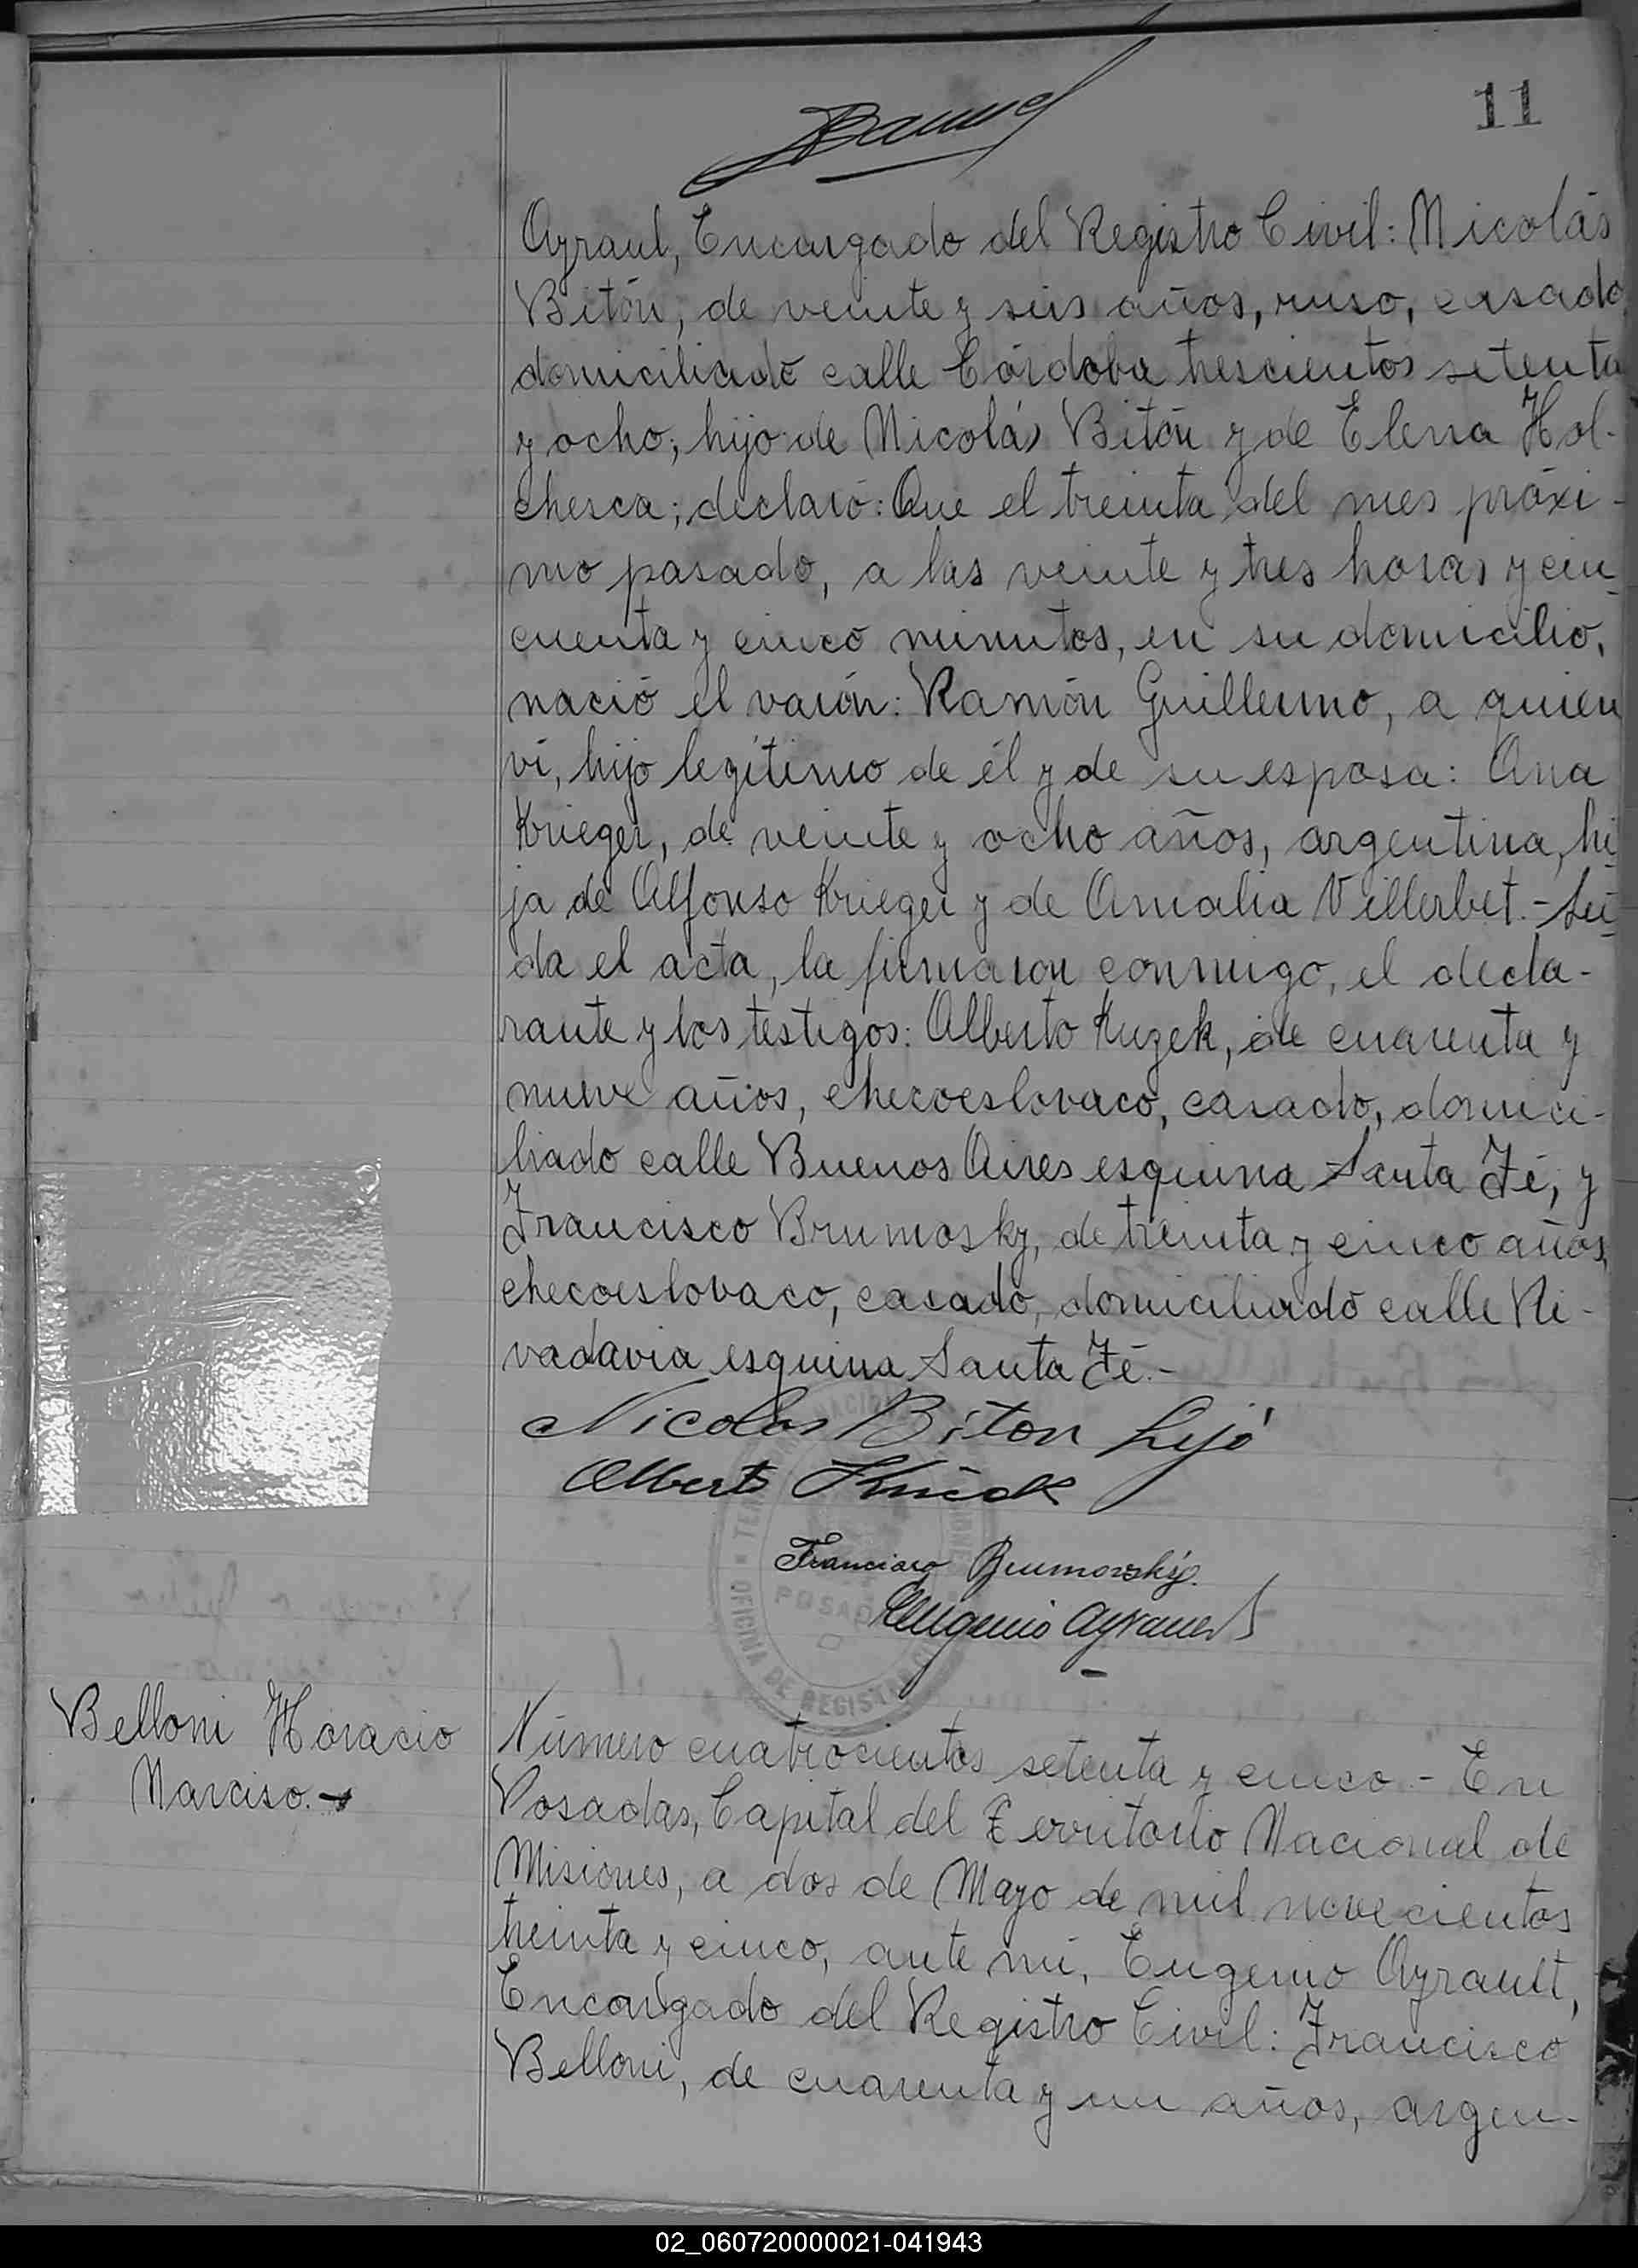 11
Ayraul, Encargado del Registro Civil: Nicolás
Bitón, de veinte y seis años, ruso, casado,
domiciliado calle Córdoba trescientos setenta
y ocho, hijo de Nicolás Bitón y de Elena Hol-
chesca; declaró: Que el treinta del mes próxi-
mo pasado, a las veinte y tres horas y cin-
cuenta y cinco minutos, en su domicilio,
nació el varón: Ramón Guillermo, a quien
ví, hijo legítimo de él y de su esposa: Ana
Krieger, de veinte y ocho años, argentina, hi-
ja de Alfonso Krieger y de Amalia Villerbet.- Leí-
da el acta, la firmaron conmigo, el decla-
rante y los testigos: Alberto Kuzek, de cuarenta y
nueve años, checoeslovaco, casado, domici-
liado calle Buenos Aires esquina Santa Fé, y
Francisco Brumosky, de treinta y cinco años,
checoeslovaco, casado, domiciliado calle Ri-
vadavia esquina Santa Fé.-
Nicolas Biton hijo
Alberto
Francisco Brumovsky.
Eugenio Ayrault
POSADAS
OFICINA DE REGISTRO
Belloni Horacio
Narciso.-
Número cuatrocientos setenta y cinco.- En
Posadas, Capital del Territorio Nacional de
Misiones, a dos de Mayo de mil novecientos
treinta y cinco, ante mí, Eugenio Ayrault,
Encargado del Registro Civil: Francisco
Belloni, de cuarenta y un años, argen-
02_060720000021-041943